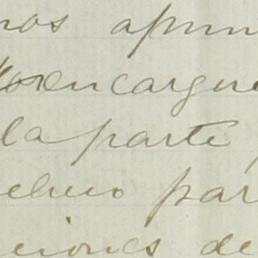 nos apun
encargue
la parte
par
ciones de